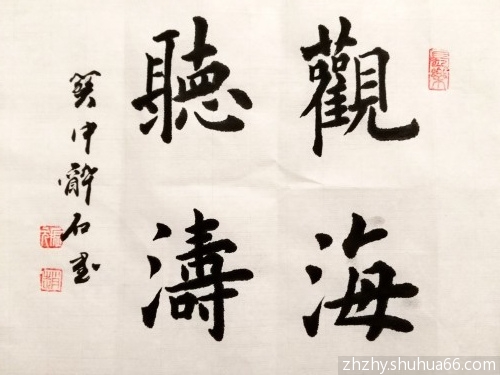 觀海
聽濤
癸中醉石書
zhzhy.shuhua66.com